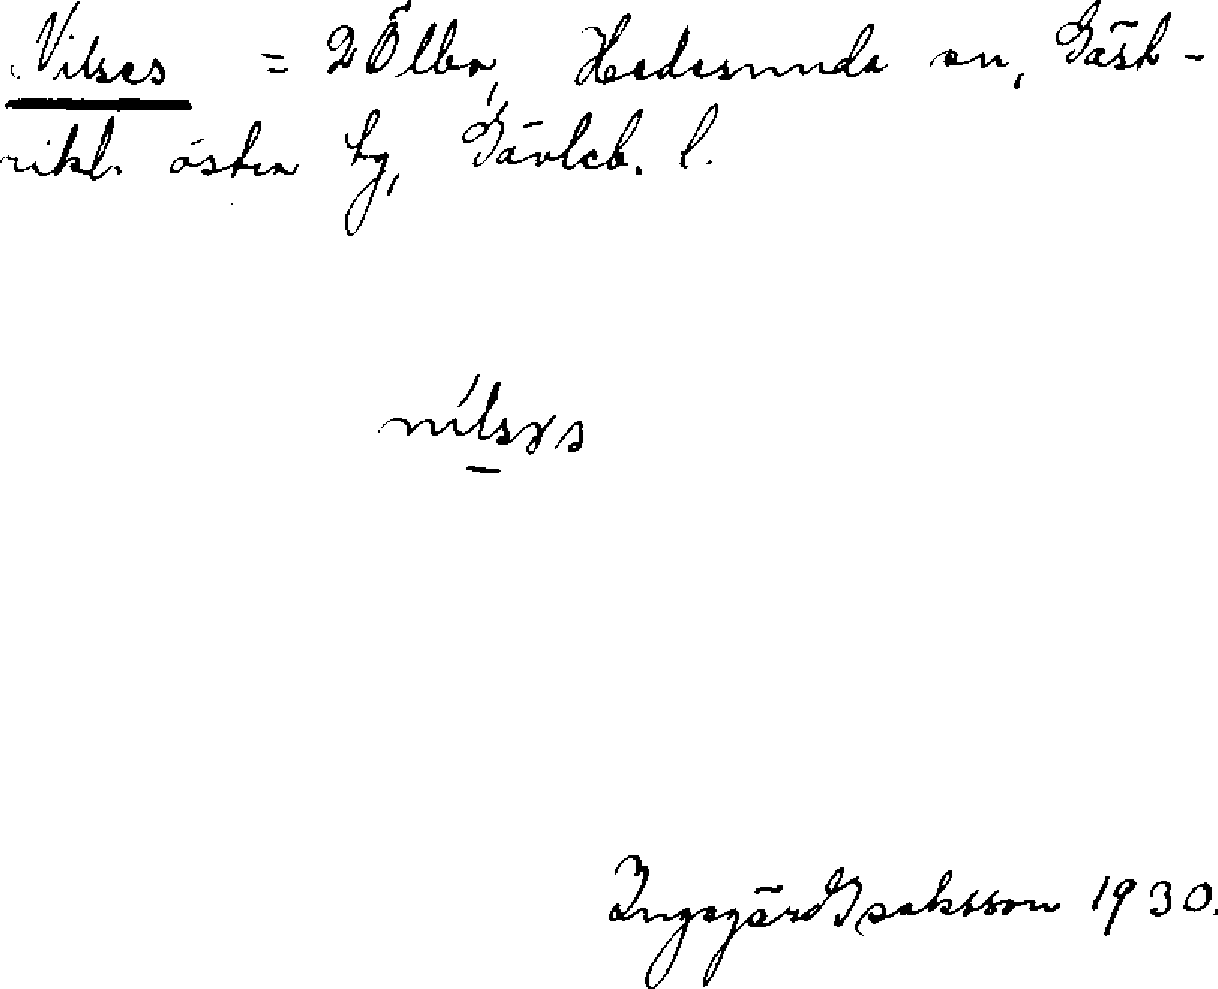 Nilses = 2 Ölbo, Hedesunda sn, Gäst-
rikl. östra tg, Gävleb. l.
nílsɤs
Ingegärd Isaksson 1930.